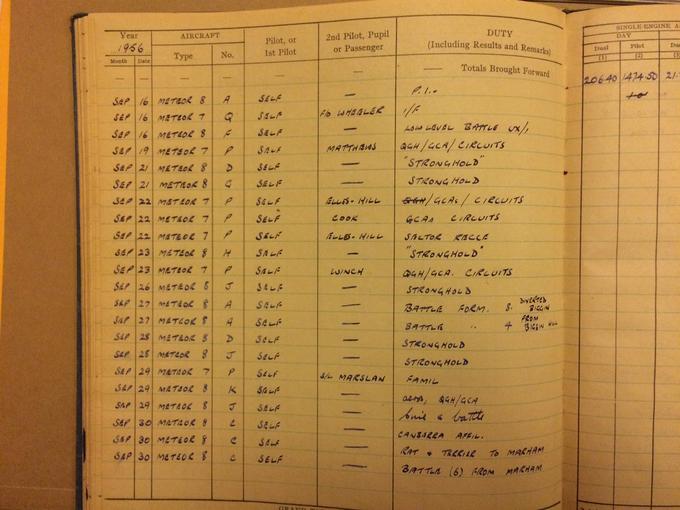 Year AIRCRAFT Pilot, or 1st Pilot 2nd Pilot, Pupil or Passenger DUTY (Including Results and Remarks) SINGLE-ENGINE A
1956 DAY
Month Date Type No. Dual Pilot Du
(1) (2) (3)
— — — — — — — Totals Brought Forward 206.40 1474.50 21.
SEP 16 METEOR 8 A SELF — P.I.
SEP 16 METEOR 7 Q SELF F/O WHEELER I/F
SEP 16 METEOR 8 F SELF — LOW LEVEL BATTLE
SEP 19 METEOR 7 P SELF MATTHEWS QGH/GCA/CIRCUITS
SEP 21 METEOR 8 D SELF — "STRONGHOLD"
SEP 21 METEOR 8 G SELF — STRONGHOLD
SEP 22 METEOR 7 P SELF ELLES-HILL QGH/GCAs/CIRCUITS
SEP 22 METEOR 7 P SELF COOK GCAs CIRCUITS
SEP 22 METEOR 7 P SELF ELLES-HILL SECTOR RECCE
SEP 23 METEOR 8 H SELF — "STRONGHOLD"
SEP 23 METEOR 7 P SELF WINCH QGH/GCA. CIRCUITS
SEP 26 METEOR 8 J SELF — STRONGHOLD
SEP 27 METEOR 8 A SELF — BATTLE FORM. 8. DIVERTED BIGGIN
SEP 27 METEOR 8 A SELF — BATTLE " 4 FROM BIGGIN HILL
SEP 28 METEOR 8 D SELF — STRONGHOLD
SEP 28 METEOR 8 J SELF — STRONGHOLD
SEP 29 METEOR 7 P SELF S/L MARSLAN FAMIL
SEP 29 METEOR 8 K SELF — QGH/GCA
SEP 29 METEOR 8 J SELF — & battle
SEP 30 METEOR 8 C SELF — CANBERRA AFFIL.
SEP 30 METEOR 8 C SELF — RAT & TERRIER TO MARHAM
SEP 30 METEOR 8 C SELF — BATTLE (6) FROM MARHAM